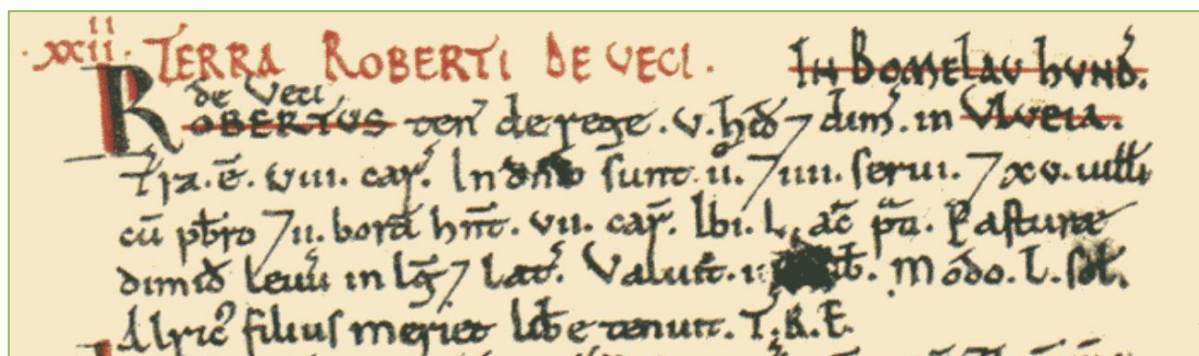 .xxii. TERRA ROBERTI DE VECI. IN BOMELAU HUND'.
de Veci
ROBERTUS ten' de rege. v. hid' 7 dim'. in ULVEIA.
Tra. ē. viii. car'. In dnio sunt. ii. 7 iiii. serui. 7 xv. uilli
cū pbro 7 ii. bord' hnt. vii. car'. Ibi. L. ac' p̄a. Pasturae
dimid' leuu' in lg̅ 7 lat'. Valuit. Modo. L. sol'.
Alric' filius meriet libe tenuit. T.R.E.